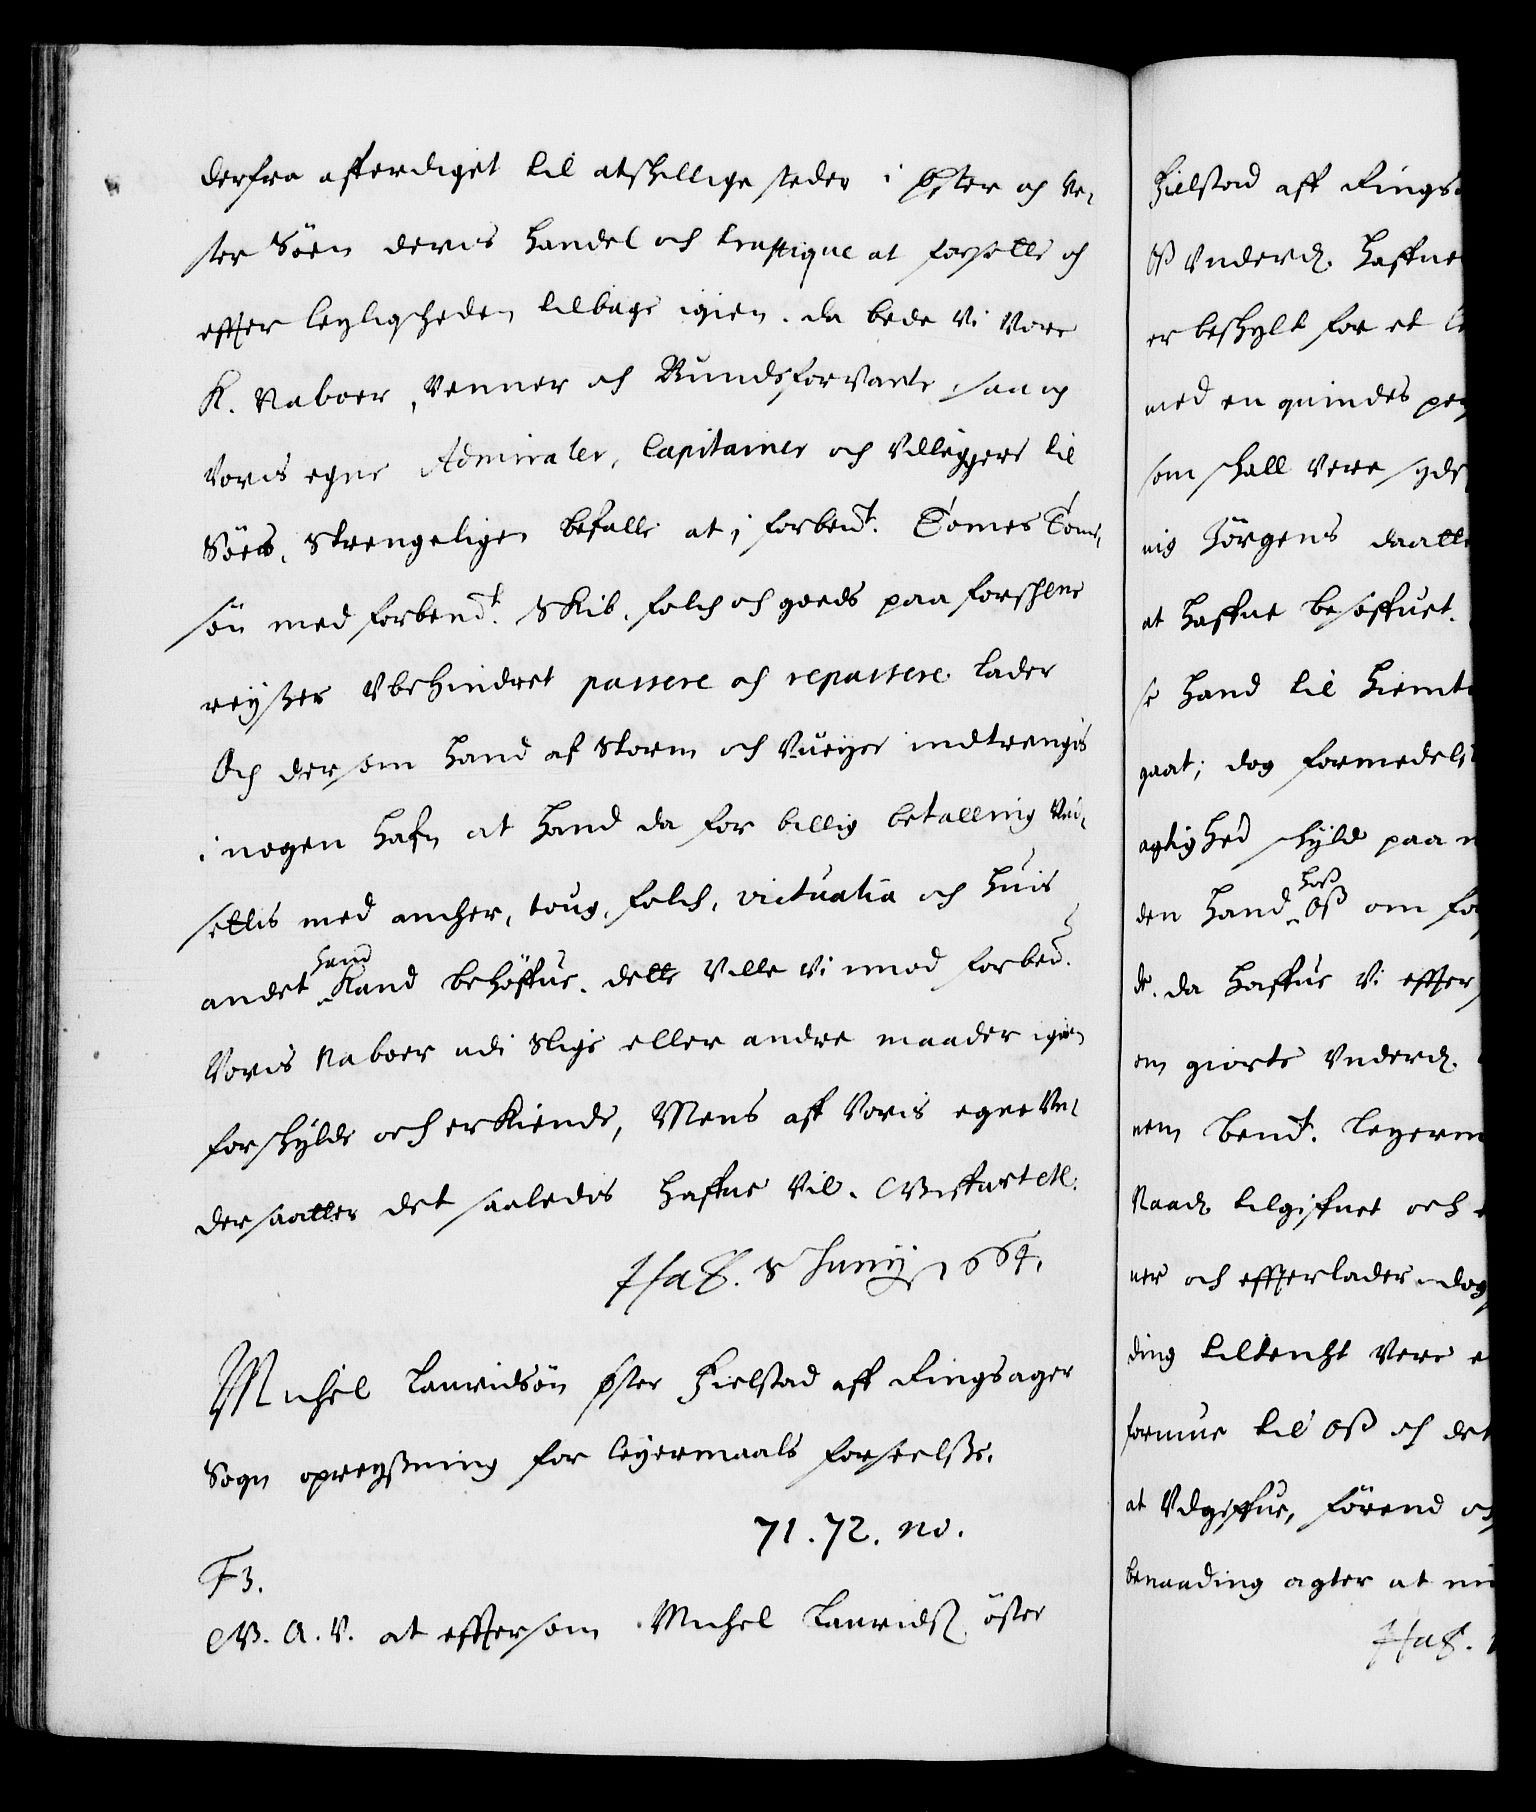 derfra afferdiget til atskellige steder i Øster och Ve,
ster Söen deris handel och traffique at fortsette och
effter leyligheden tilbage igien. da bede Vi Vore
K. Naboer, Venner och Bundsforvante, saa og
Voris egne Admiraler, Capitainer och Udliggere til
Söes, Strengeligen befalle at i forbend.t Tomes Toms,
sön med forbend.t Skib, folch och goeds paa forschrne
reyser Vbehindret passere och repassere lader
Och dersom hand af Storm och Vueyer indtrengis
i nogen Hafn at hand da for billig betalling Und,
settis med ancher, toug, folch, victualia och huis
andet hand Kand behöffue. dette Ville Vi imod forbed.
Voris Naboer udi slige eller andre maader igien
forschylde och erKiende, Mens aff Voris egne Vn,
dersaatter det saaledis haffue Vil. Giffvet etc.
Hafn. 8 Junij 1664.
Michel Lauridsön Øster Hielstad aff Ringsager
Sogn opreysning for leyermaals forseelse.
71. 72. no.
F 3.
G. A. V. at effter som Michel Lauridsß öster
Hielstad aff Ringsa
Oß Underd. haffue
er beskylt for et le
med en quindes per
som schall Vere syds
nis Jörgens daatte
at haffue besoffuet.
se hand til hiemt
gaat; dog formedelst
agtighed schyld paa
den hand hoß Oß om for
de. da haffue Vi effter
om giorte Underd.
nem bend.t leyerm
Naad. tilgiffuet och
ner och effterlader. dog
ding tiltencht Vere
formue til Oß och det
at Udgiffue, förend och
benaading agter at ni
Hafn.